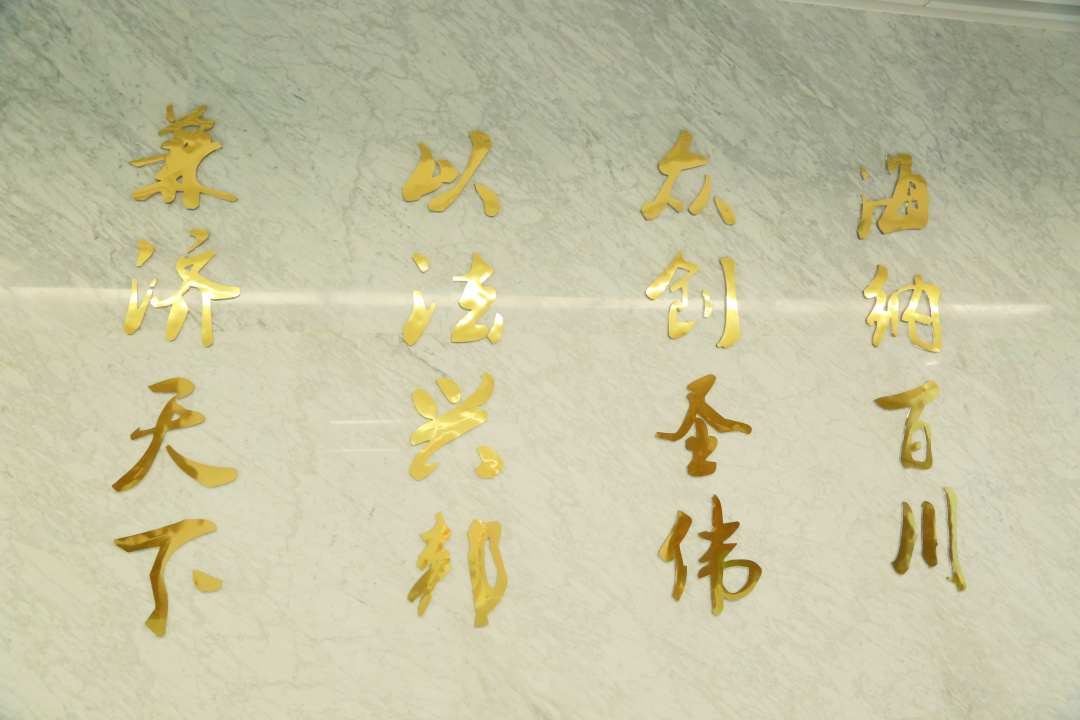 海纳百川
众创圣伟
以法兴邦
兼济天下